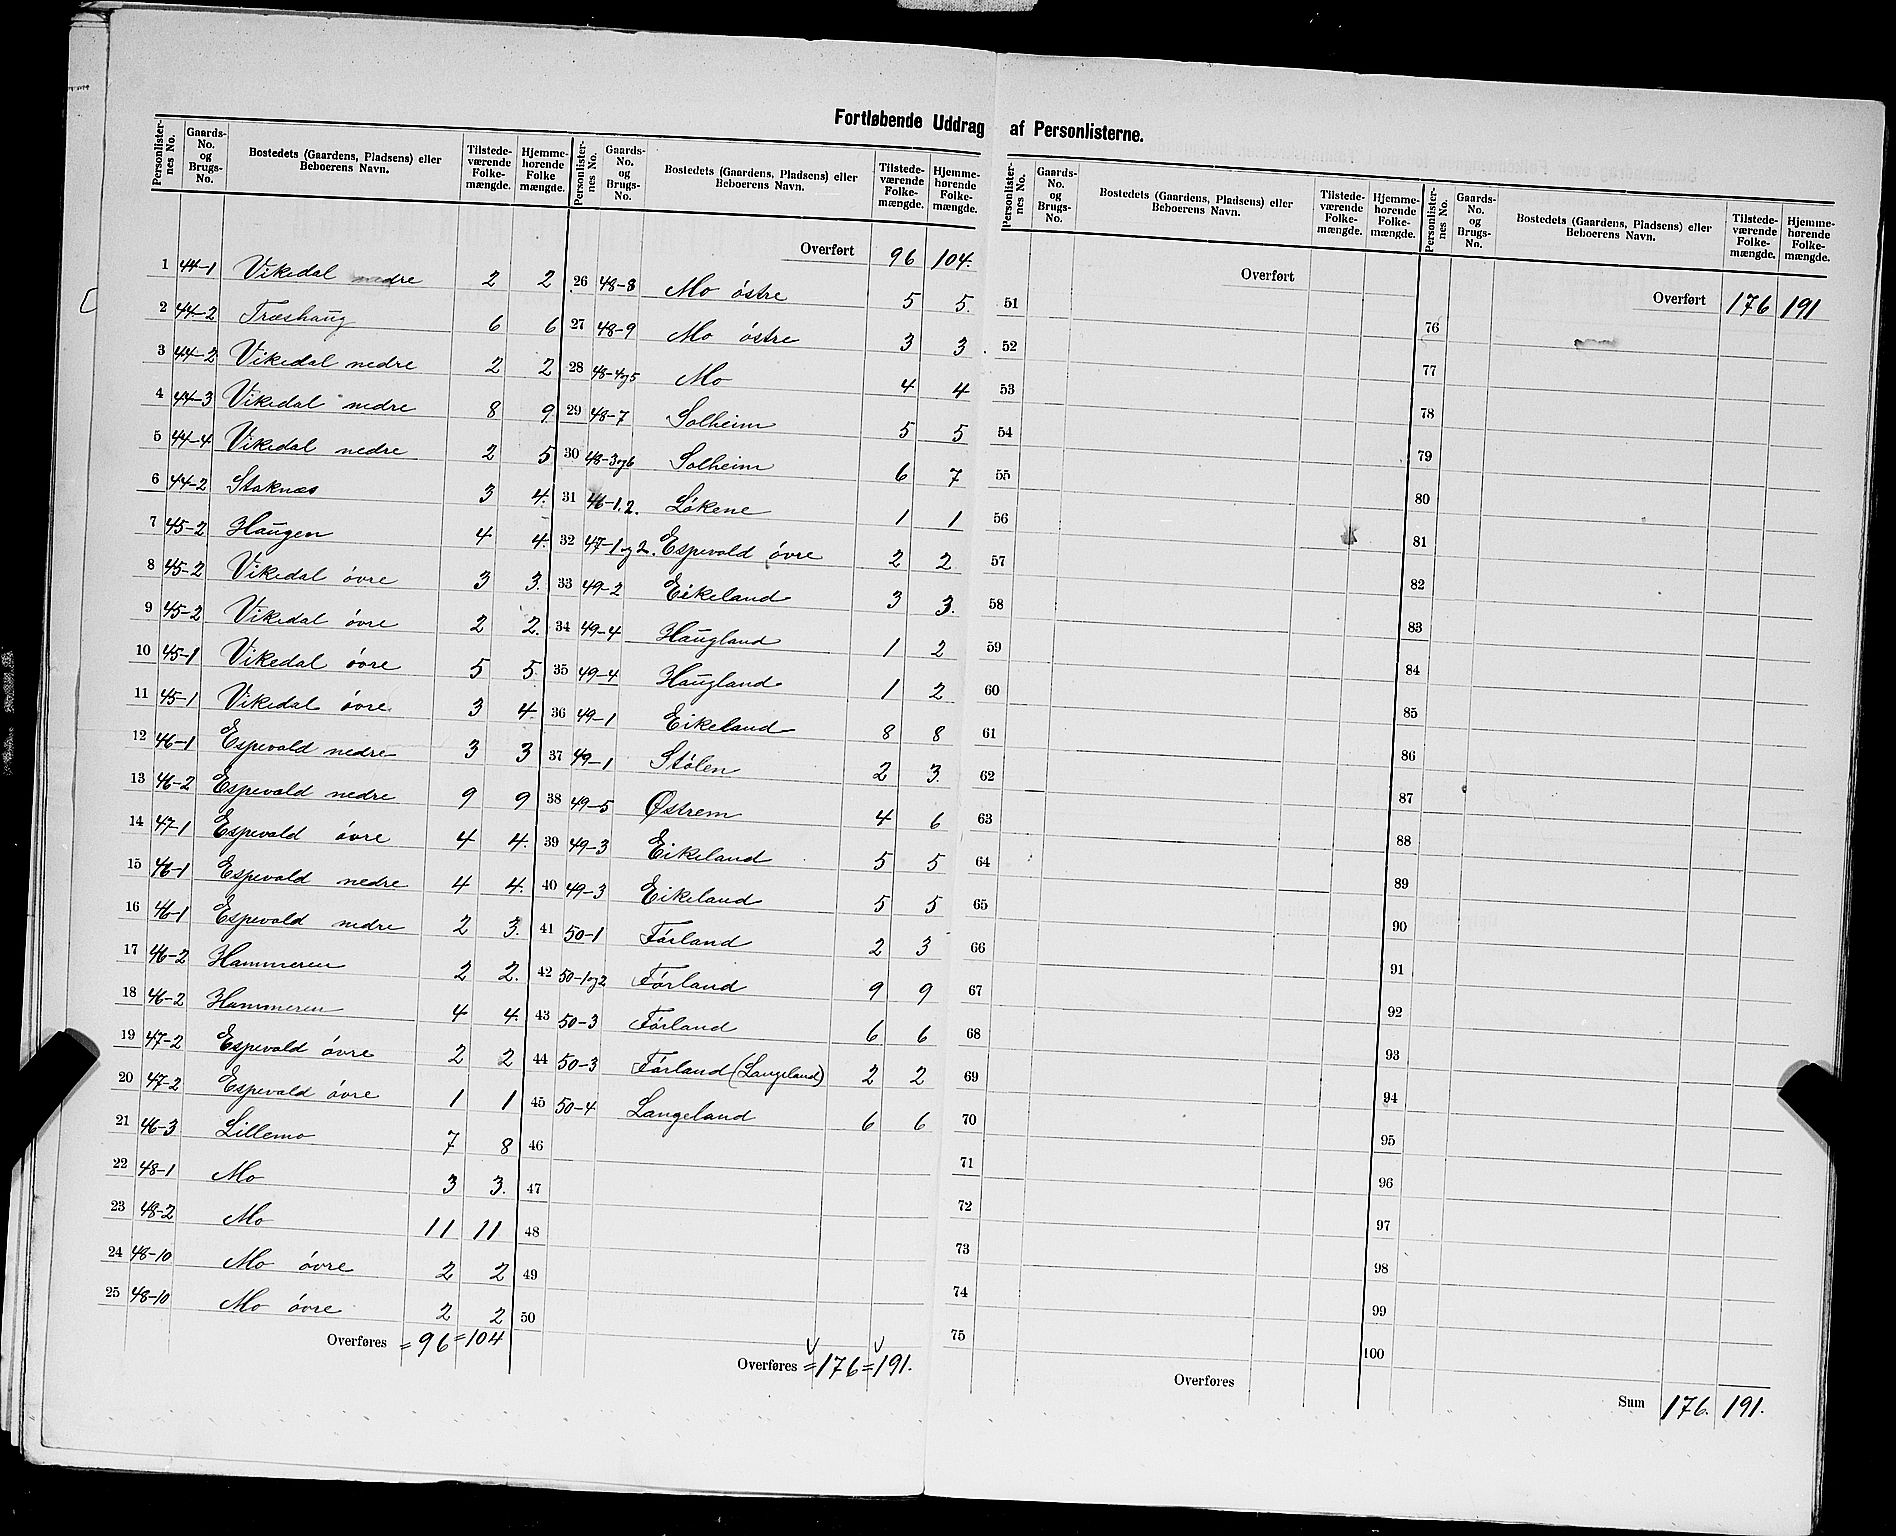 Fortløbende Uddrag af Personlisterne.
Personlisternes No. Gaards-No. og Brugs-No. Bostedets (Gaardens, Pladsens) eller Beboerens Navn. Tilstedeværende Folkemængde. Hjemmehørende Folkemængde.
1 44-1 Vikedal nedre 2 2
2 44-2 Træshaug 6 6
3 44-2 Vikedal nedre 2 2
4 44-3 Vikedal nedre 8 9
5 44-4 Vikedal nedre 2 5
6 44-2 Staknæs 3 4.
7 45-2 Haugen 4 4.
8 45-2 Vikedal övre 3 3.
9 45-2 Vikedal övre 2 2.
10 45-1 Vikedal övre 5 5.
11 45-1 Vikedal övre 3 4.
12 46-1 Espevold nedre 3 3
13 46-2 Espevold nedre 9 9
14 47-1 Espevold övre 4 4.
15 46-1 Espevold nedre 4 4.
16 46-1 Espevold nedre 2 3.
17 46-2 Hammeren 2 2.
18 46-2 Hammeren 4 4.
19 47-2 Espevold övre 2 2
20 47-2 Espevold övre 1 1
21 46-3 Lillemo 7 8
22 48-1 Mo 3 3.
23 48-2 Mo 11 11
24 48-10 Mo övre 2 2
25 48-10 Mo övre 2 2
Overføres = 96 = 104
Personlisternes No. Gaards-No. og Brugs-No. Bostedets (Gaardens, Pladsens) eller Beboerens Navn. Tilstedeværende Folkemængde. Hjemmehørende Folkemængde.
Overført 96 104.
26 48-8 Mo östre 5 5.
27 48-9 Mo östre 3 3
28 48-4og5 Mo 4 4
29 48-7 Solheim 5 5
30 48-3og6 Solheim 6 7
31 46-1.2. Lökene 1 1
32 47-1og2. Espevold övre 2 2
33 49-2 Eikeland 3 3.
34 49-4 Haugland 1 2
35 49-4 Haugland 1 2
36 49-1 Eikeland 8 8
37 49-1 Stölen 2 3.
38 49-5 Østrem 4 6
39 49-3 Eikeland 5 5
40 49-3 Eikeland 5 5
41 50-1 Förland 2 3
42 50-1og2 Förland 9 9
43 50-3 Förland 6 6
44 50-3 Förland (Langeland) 2 2
45 50-4 Langeland 6 6
46
47
48
49
50
Overføres = 176 = 191.
Personlisternes No. Gaards-No. og Brugs-No. Bostedets (Gaardens, Pladsens) eller Beboerens Navn. Tilstedeværende Folkemængde. Hjemmehørende Folkemængde.
Overført
51
52
53
54
55
56
57
58
59
60
61
62
63
64
65
66
67
68
69
70
71
72
73
74
75
Overføres
Personlisternes No. Gaards-No. og Brugs-No. Bostedets (Gaardens, Pladsens) eller Beboerens Navn. Tilstedeværende Folkemængde. Hjemmehørende Folkemængde.
Overført 176 191
76
77
78
79
80
81
82
83
84
85
86
87
88
89
90
91
92
93
94
95
96
97
98
99
100
Sum 176. 191.